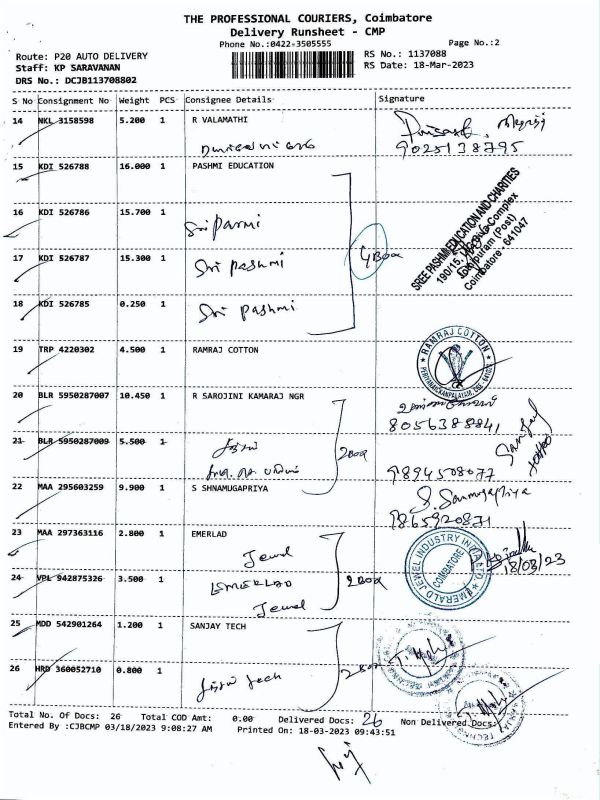 THE PROFESSIONAL COURIERS, Coimbatore
Delivery Runsheet - CMP
Phone No.:0422-3505555 Page No.:2
Route: P20 AUTO DELIVERY RS No.: 1137088
Staff: KP SARAVANAN RS Date: 18-Mar-2023
DRS No.: DCJB113708802
S No Consignment No Weight PCS Consignee Details Signature
14 NKL 3158598 5.200 1 R VALAMATHI
9025138795
15 KDI 526788 16.000 1 PASHMI EDUCATION
SREE PASHMI EDUCATION AND CHARITIES
Complex
(Post)
Coimbatore - 641047
16 KDI 526786 15.700 1
Sri Pasmi
4 Box
17 KDI 526787 15.300 1 Sri pashmi
18 KDI 526785 0.250 1 Sri Pashmi
19 TRP 4220302 4.500 1 RAMRAJ COTTON
RAMRAJ COTTON
20 BLR 5950287007 10.450 1 R SAROJINI KAMARAJ NGR
8056388841
21 BLR 5950287009 5.500 1
2 Box
9894508077
22 MAA 295603259 9.900 1 S SHNAMUGAPRIYA
S. Sanmugapriya
9865920871
23 MAA 297363116 2.800 1 EMERLAD
Jewel
EMERALD JEWEL INDUSTRY IN LTD
COIMBATORE
18/03/23
24 VPL 942875326 3.500 1 EMERLAD 2 Box
Jewel
25 MDD 542901264 1.200 1 SANJAY TECH
2 Box
26 HRD 360052710 0.800 1
Total No. Of Docs: 26 Total COD Amt: 0.00 Delivered Docs: 26 Non Delivered Docs:
Entered By :CJBCMP 03/18/2023 9:08:27 AM Printed On: 18-03-2023 09:43:51